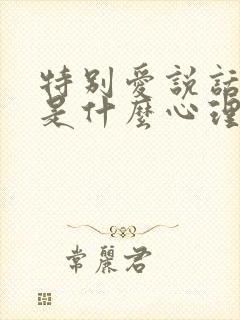 特别愛説話
是什麽心理
常麗君